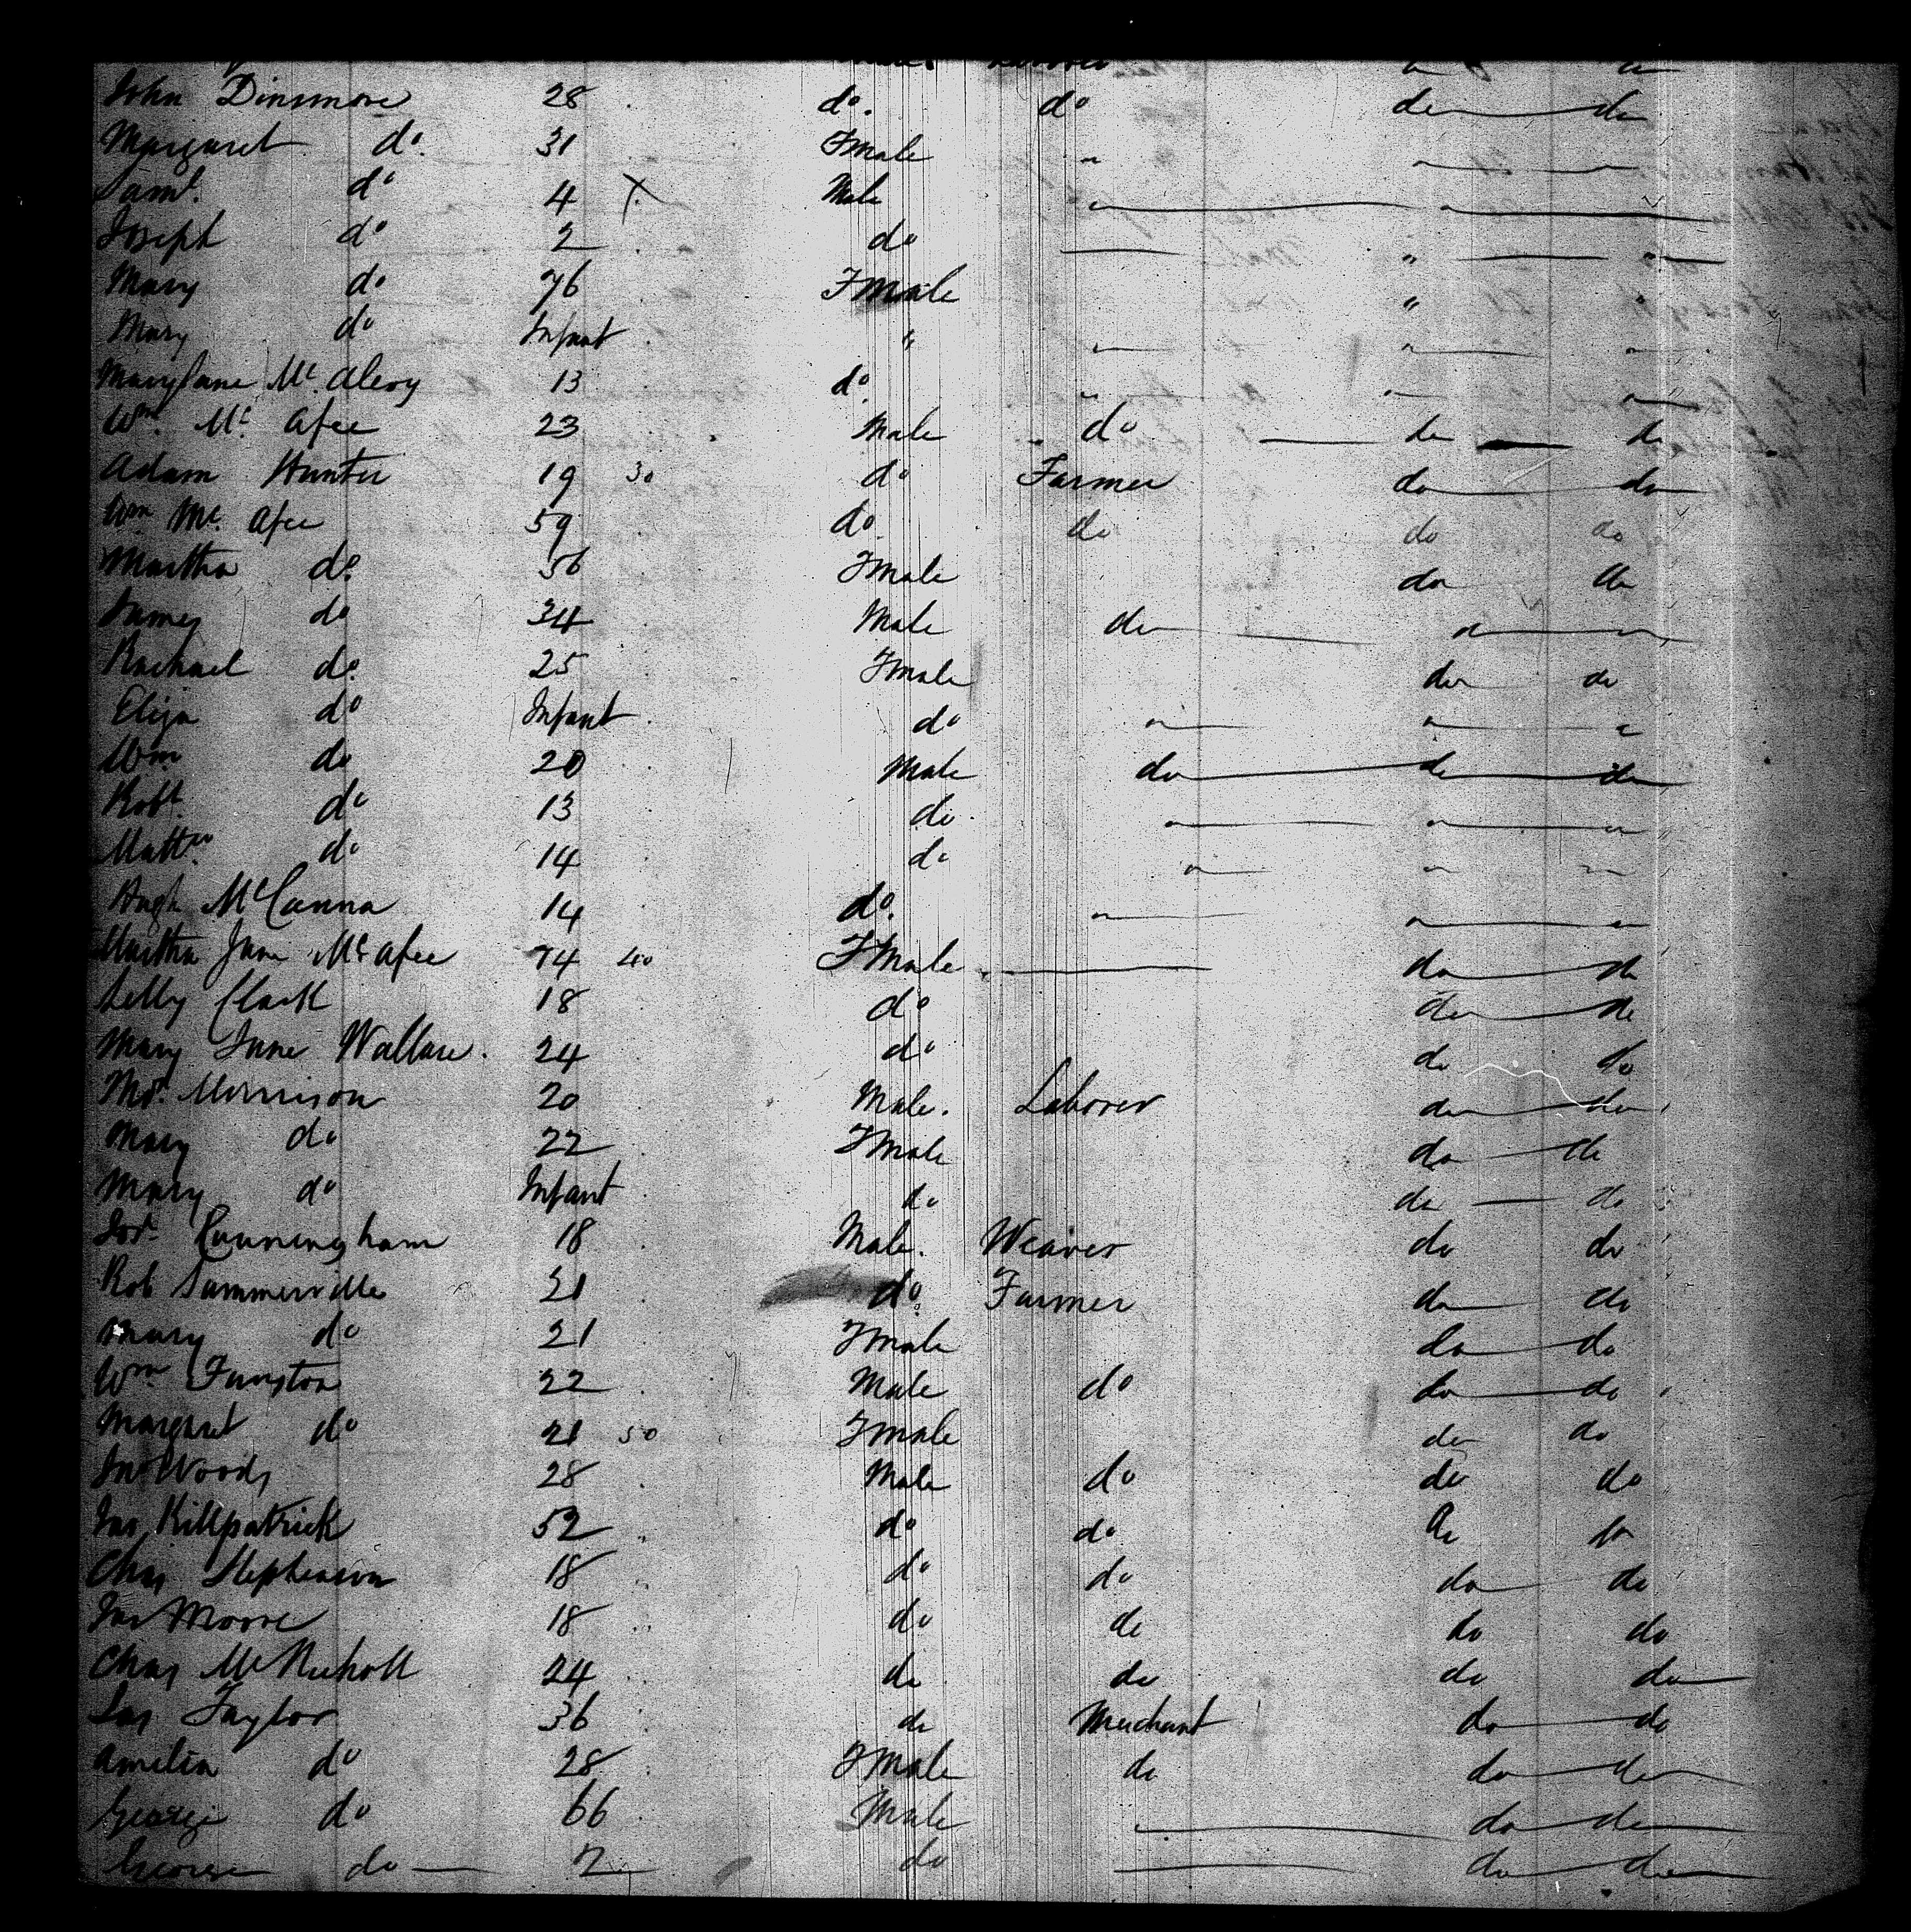 John Dinsmore 28 do. do do do
Margaret do. 31 Fmale " " "
Saml. do 4 X Male " "
Joseph do 2 do " "
Mary do 76 Fmale " "
Mary do Infant " " " "
Mary Jane Mc. Alevy 13 do. " " "
Wm. Mc. Afee 23 Male do do do
Adam Hunter 19 30 do Farmer do do
Wm Mc. Afee 59 do. do do do
Martha do. 56 Fmale do do
James do 34 Male do " "
Rachael do. 25 Fmale do do
Eliza do Infant do " " "
Wm do 20 Male do do do
Robt. do 13 do. " " "
Mattw. do 14 do " " "
Hugh McCanna 14 do. " " "
Martha Jane Mc Afee 74 40 FMale do do
Letty Clark 18 do do do
Mary Jane Wallace. 24 do do do
Morrison 20 Male. Laborer do do
Mary do 22 Fmale do do
Mary do Infant do do do
Cunningham 18 Male. Weaver do do
Rob Sammerville 21 do. Farmer do do
Mary do 21 Fmale do do
Wm Funston 22 Male do do do
Margaret do 21 50 Fmale do do
Jno Woods 28 Male do do do
Jas Killpatrick 52 do do. do do
Chas Stephenson 18 do do do do
Jas Moore 18 do do do do
Chas McNicholl 24 do do do do
Jas Taylor 36 do Merchant do do
Amelia do 28 Fmale do do do
George do 66 Male do do
George do 2 do do do